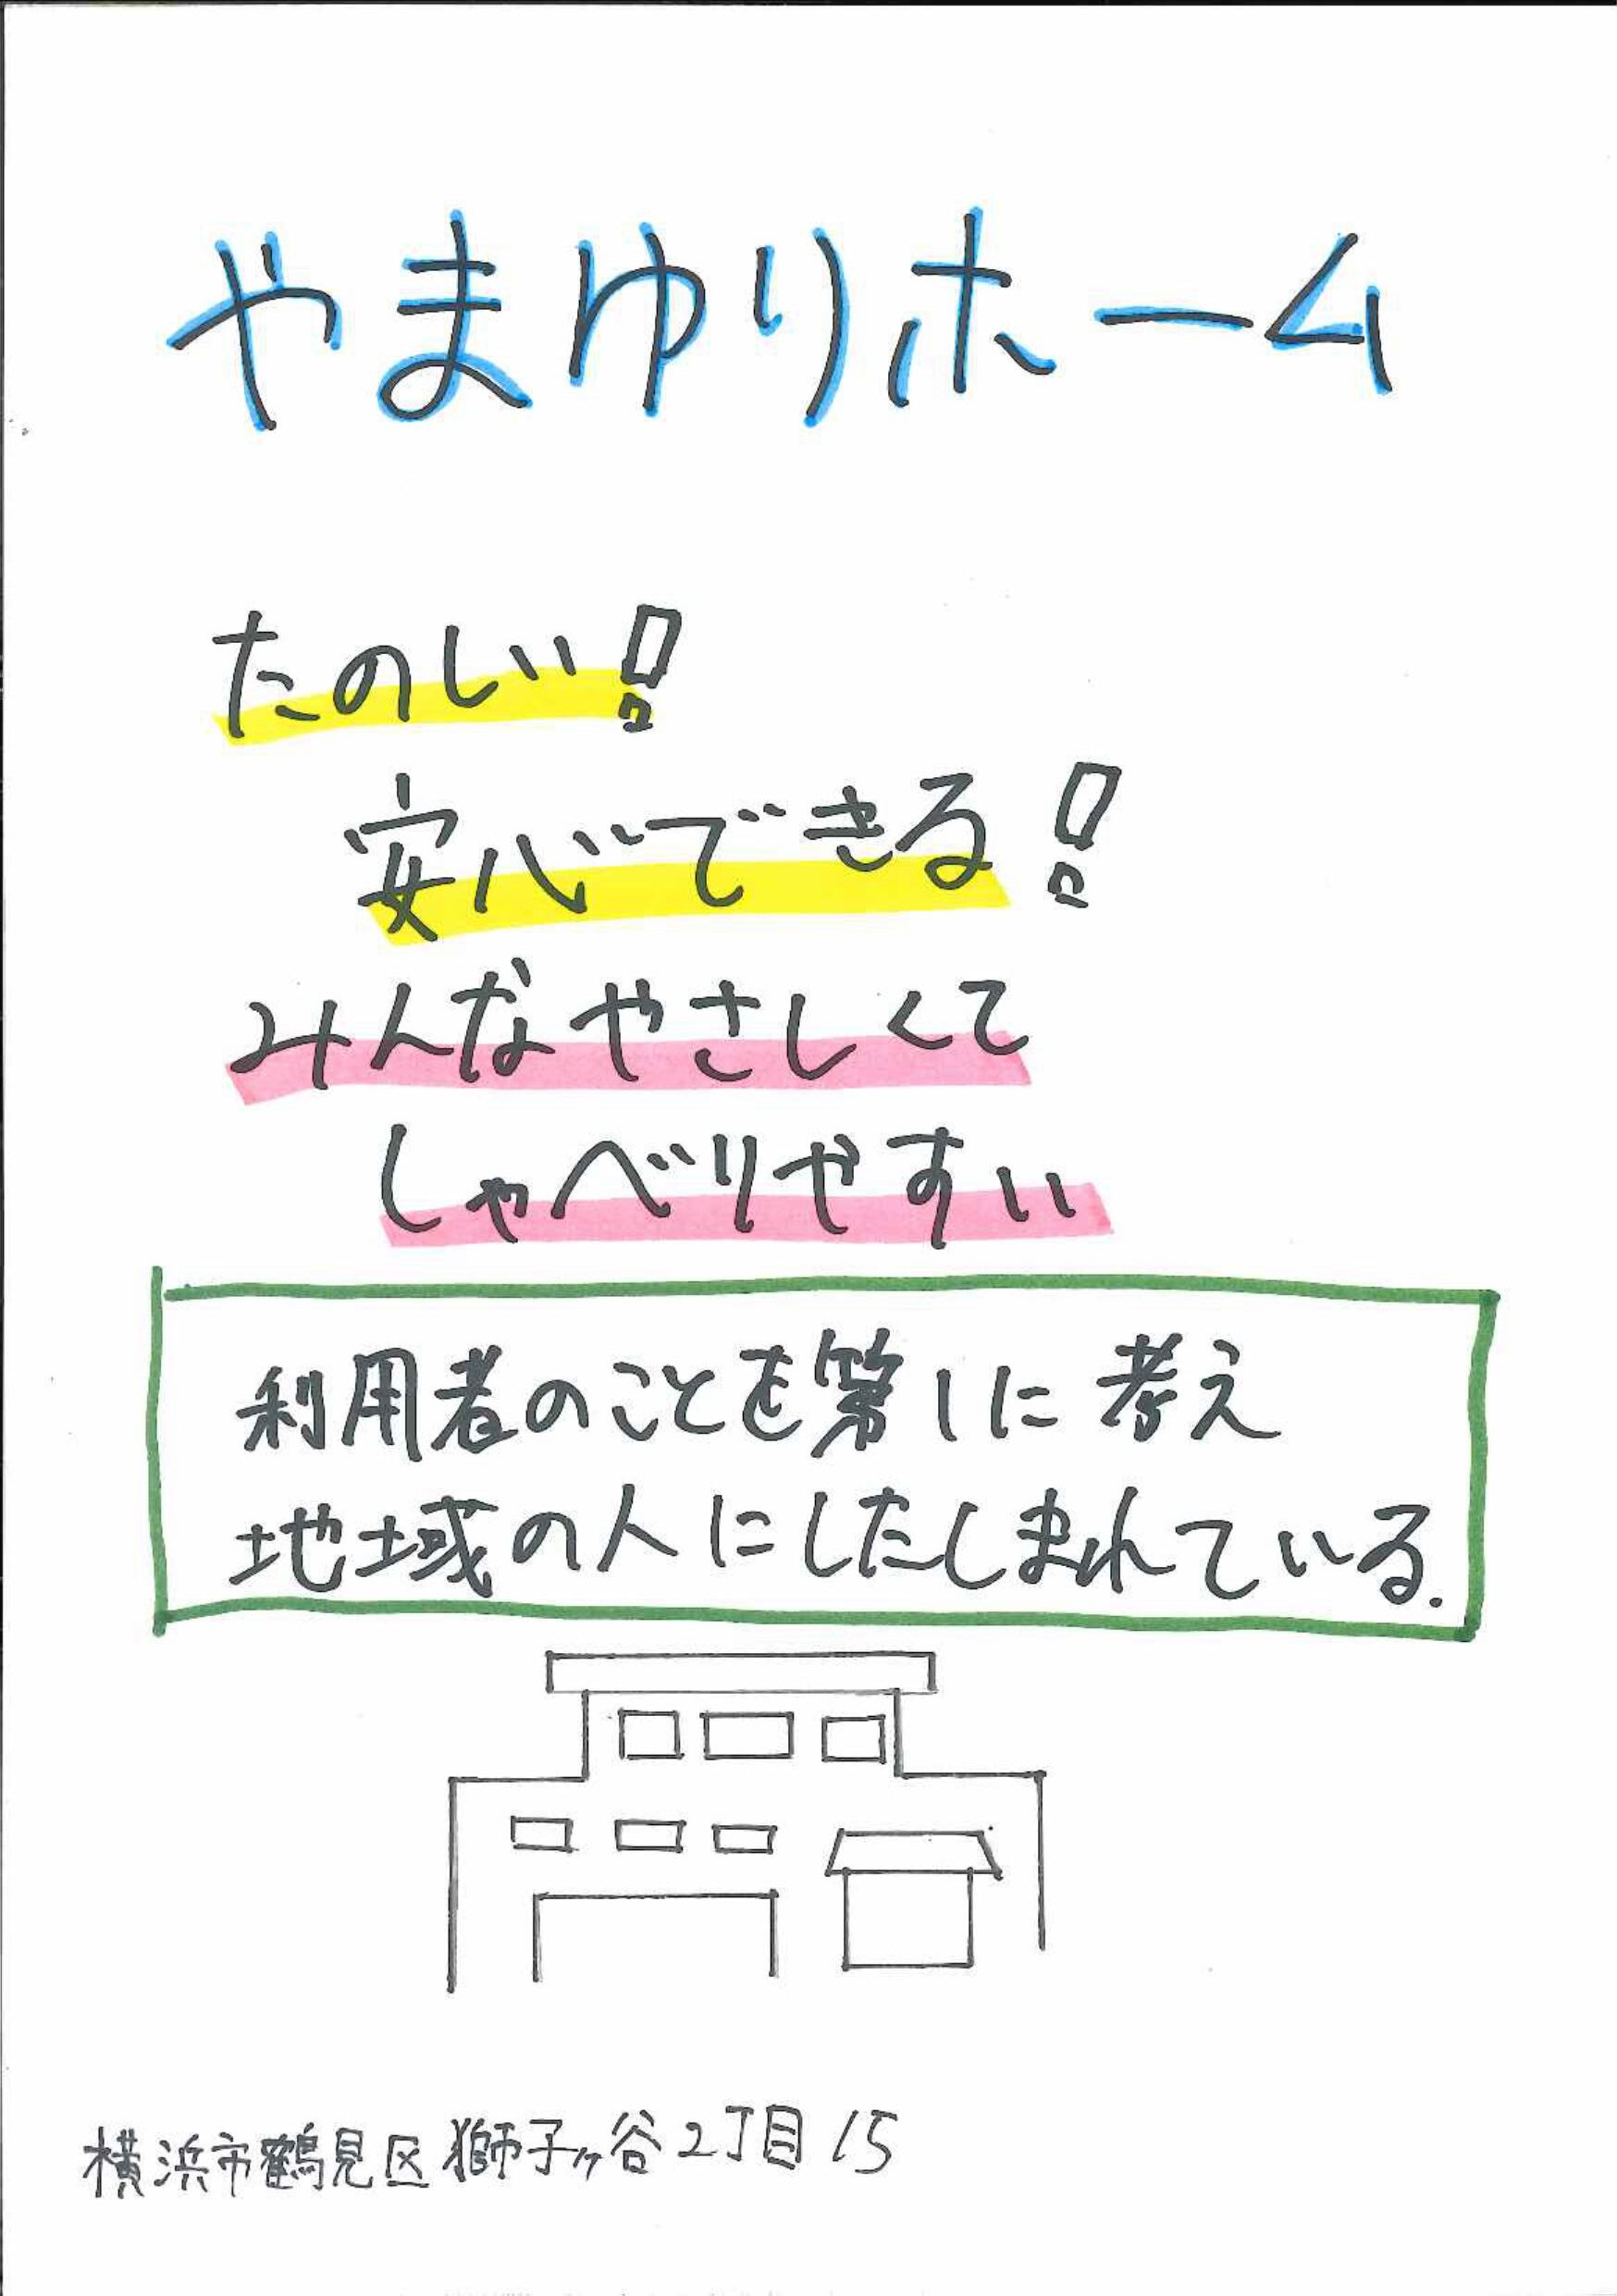 やまゆりホーム
たのしい!
安心できる!
みんなやさしくて
しゃべりやすい
利用者のことを第1に考え
地域の人にしたしまれている.
横浜市鶴見区獅子ヶ谷2丁目15